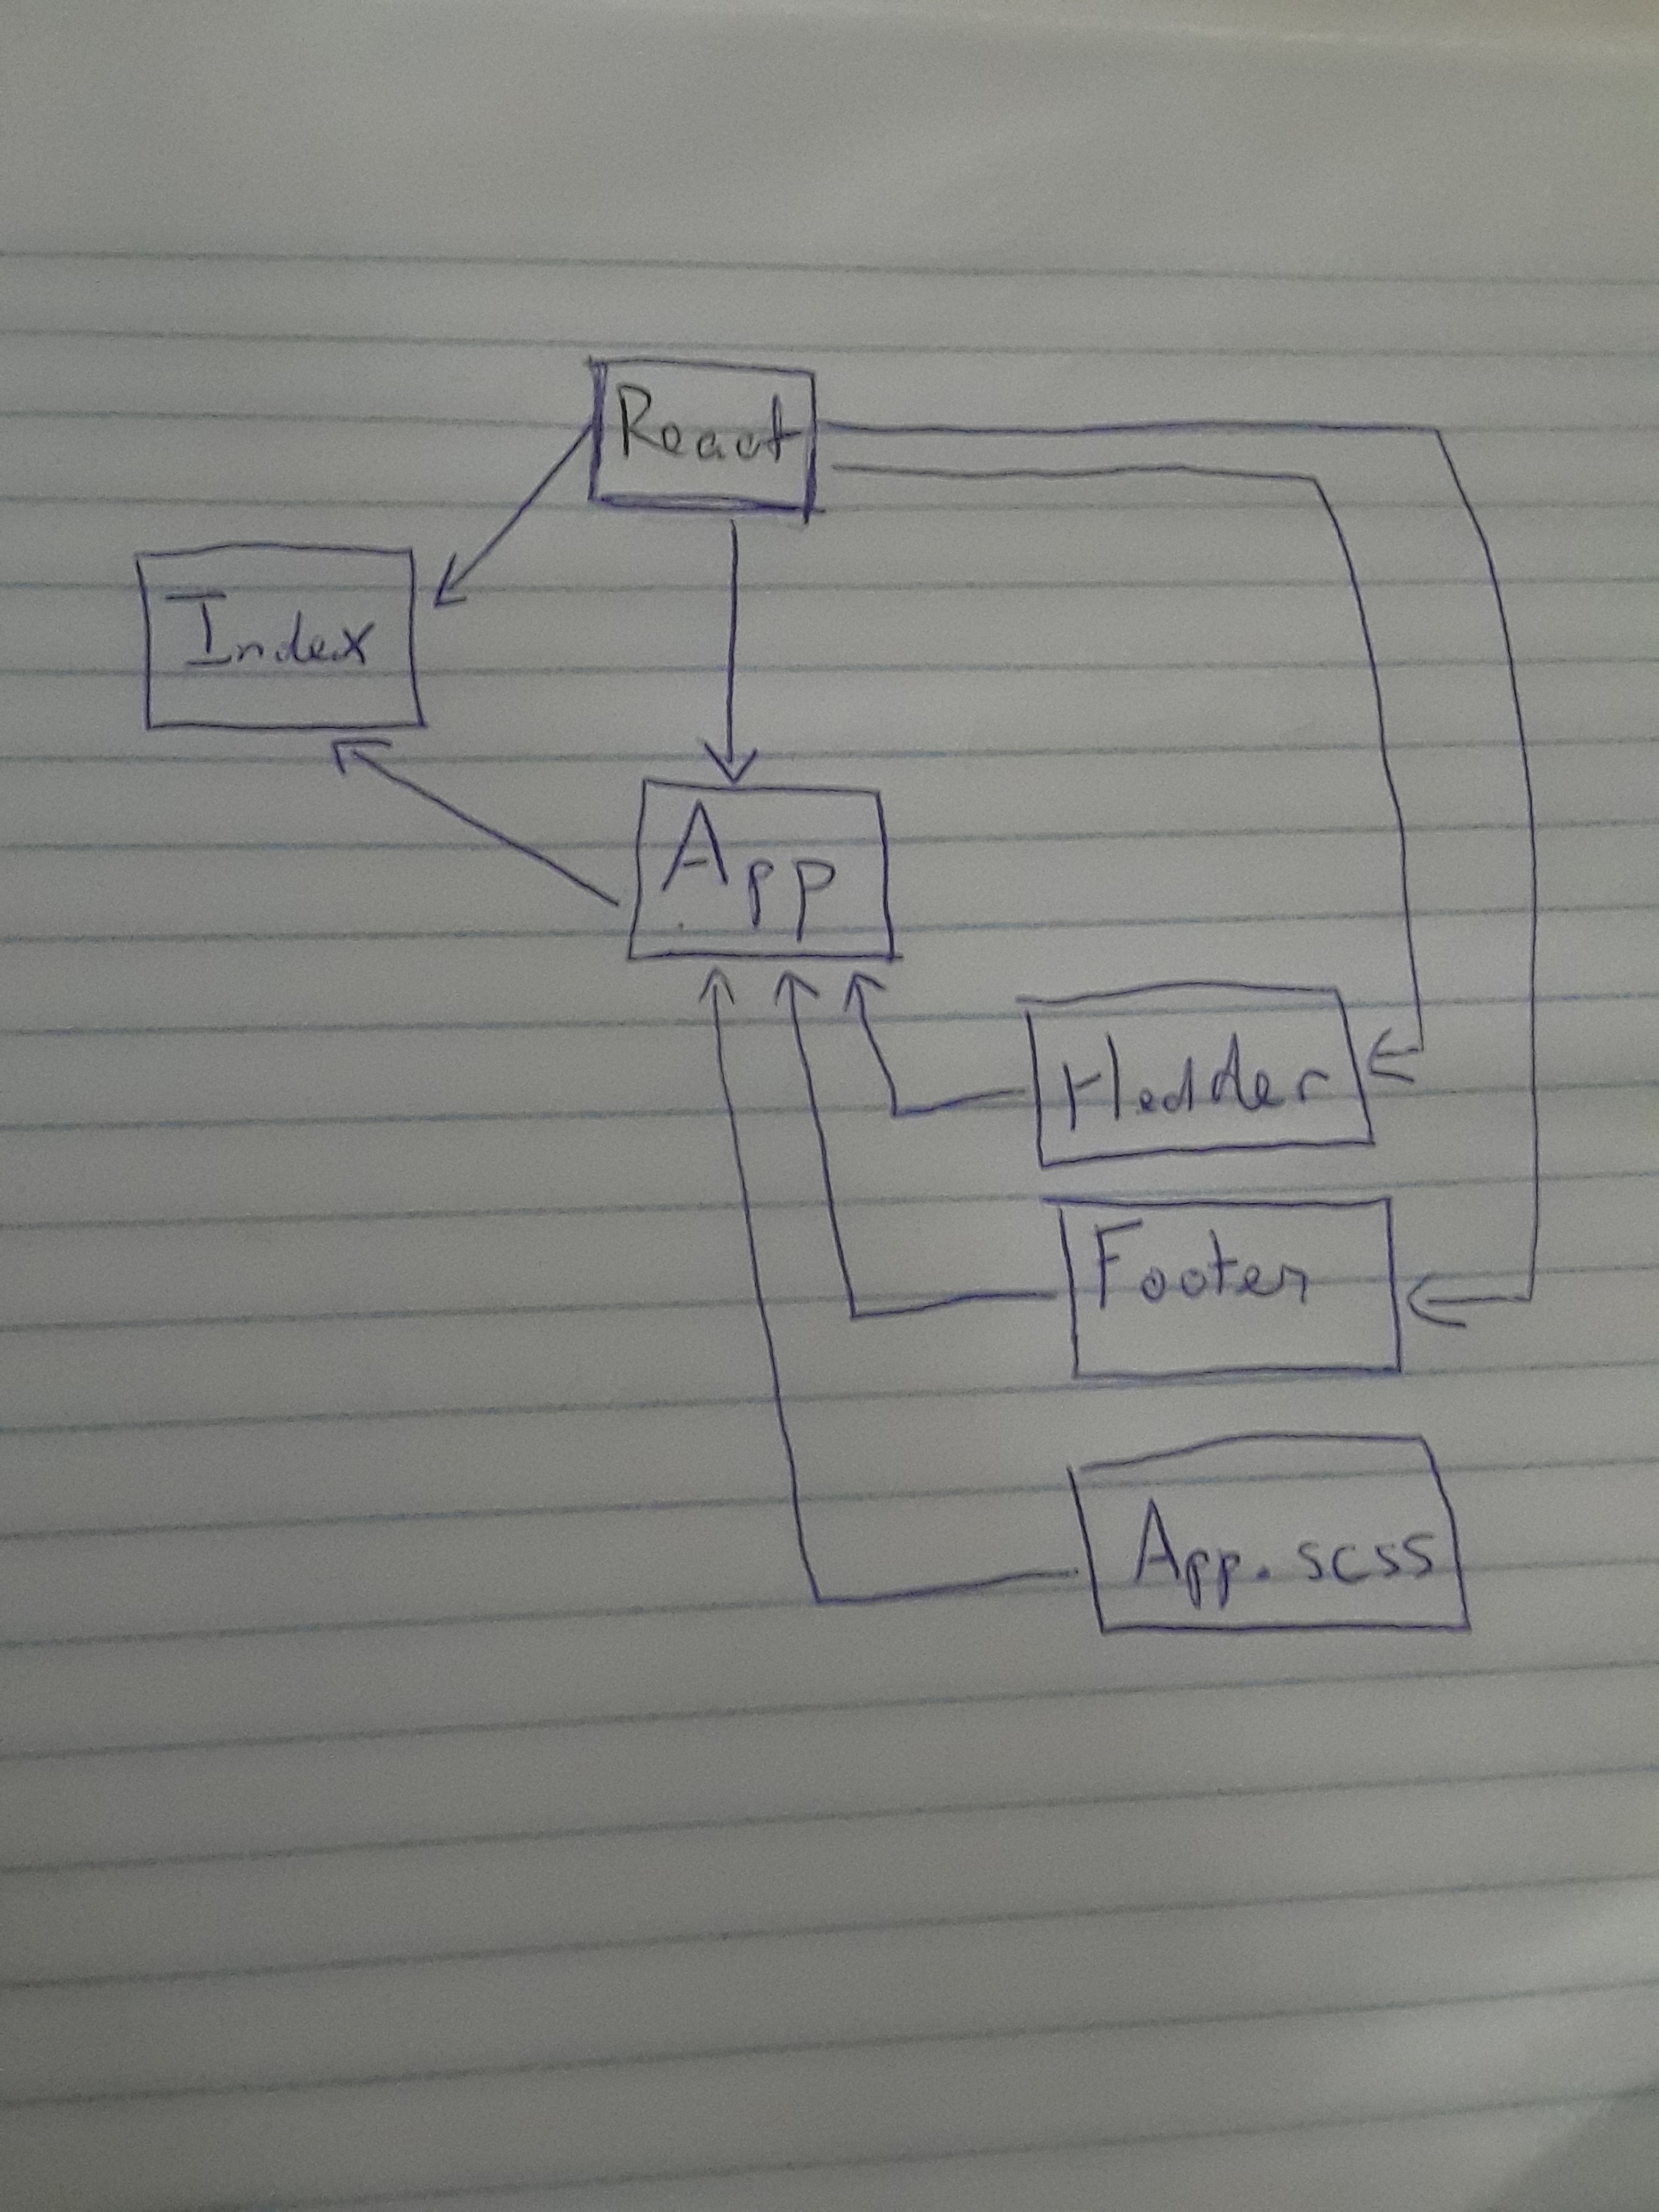 React
Index
App
Hedder
Footer
App.scss